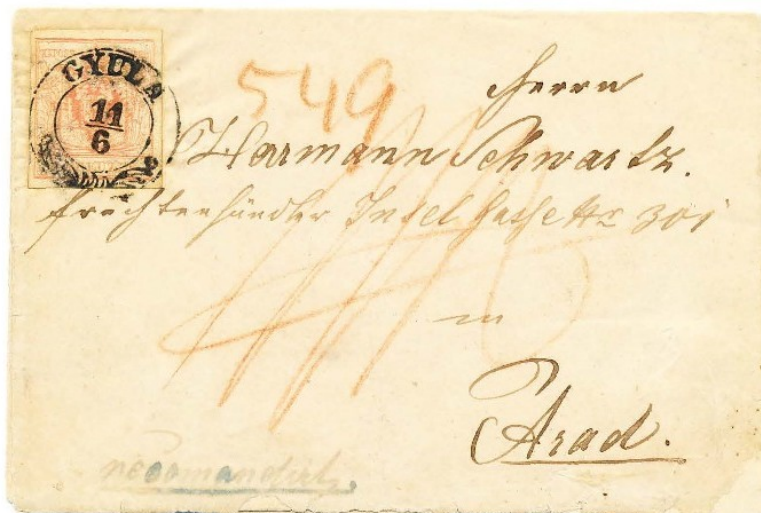 GYULA
11
6
549
Herrn
Hermann Schwartz.
Fruchtenhändler Insel Gasse Nr 301
in
Arad.
recomandirt.